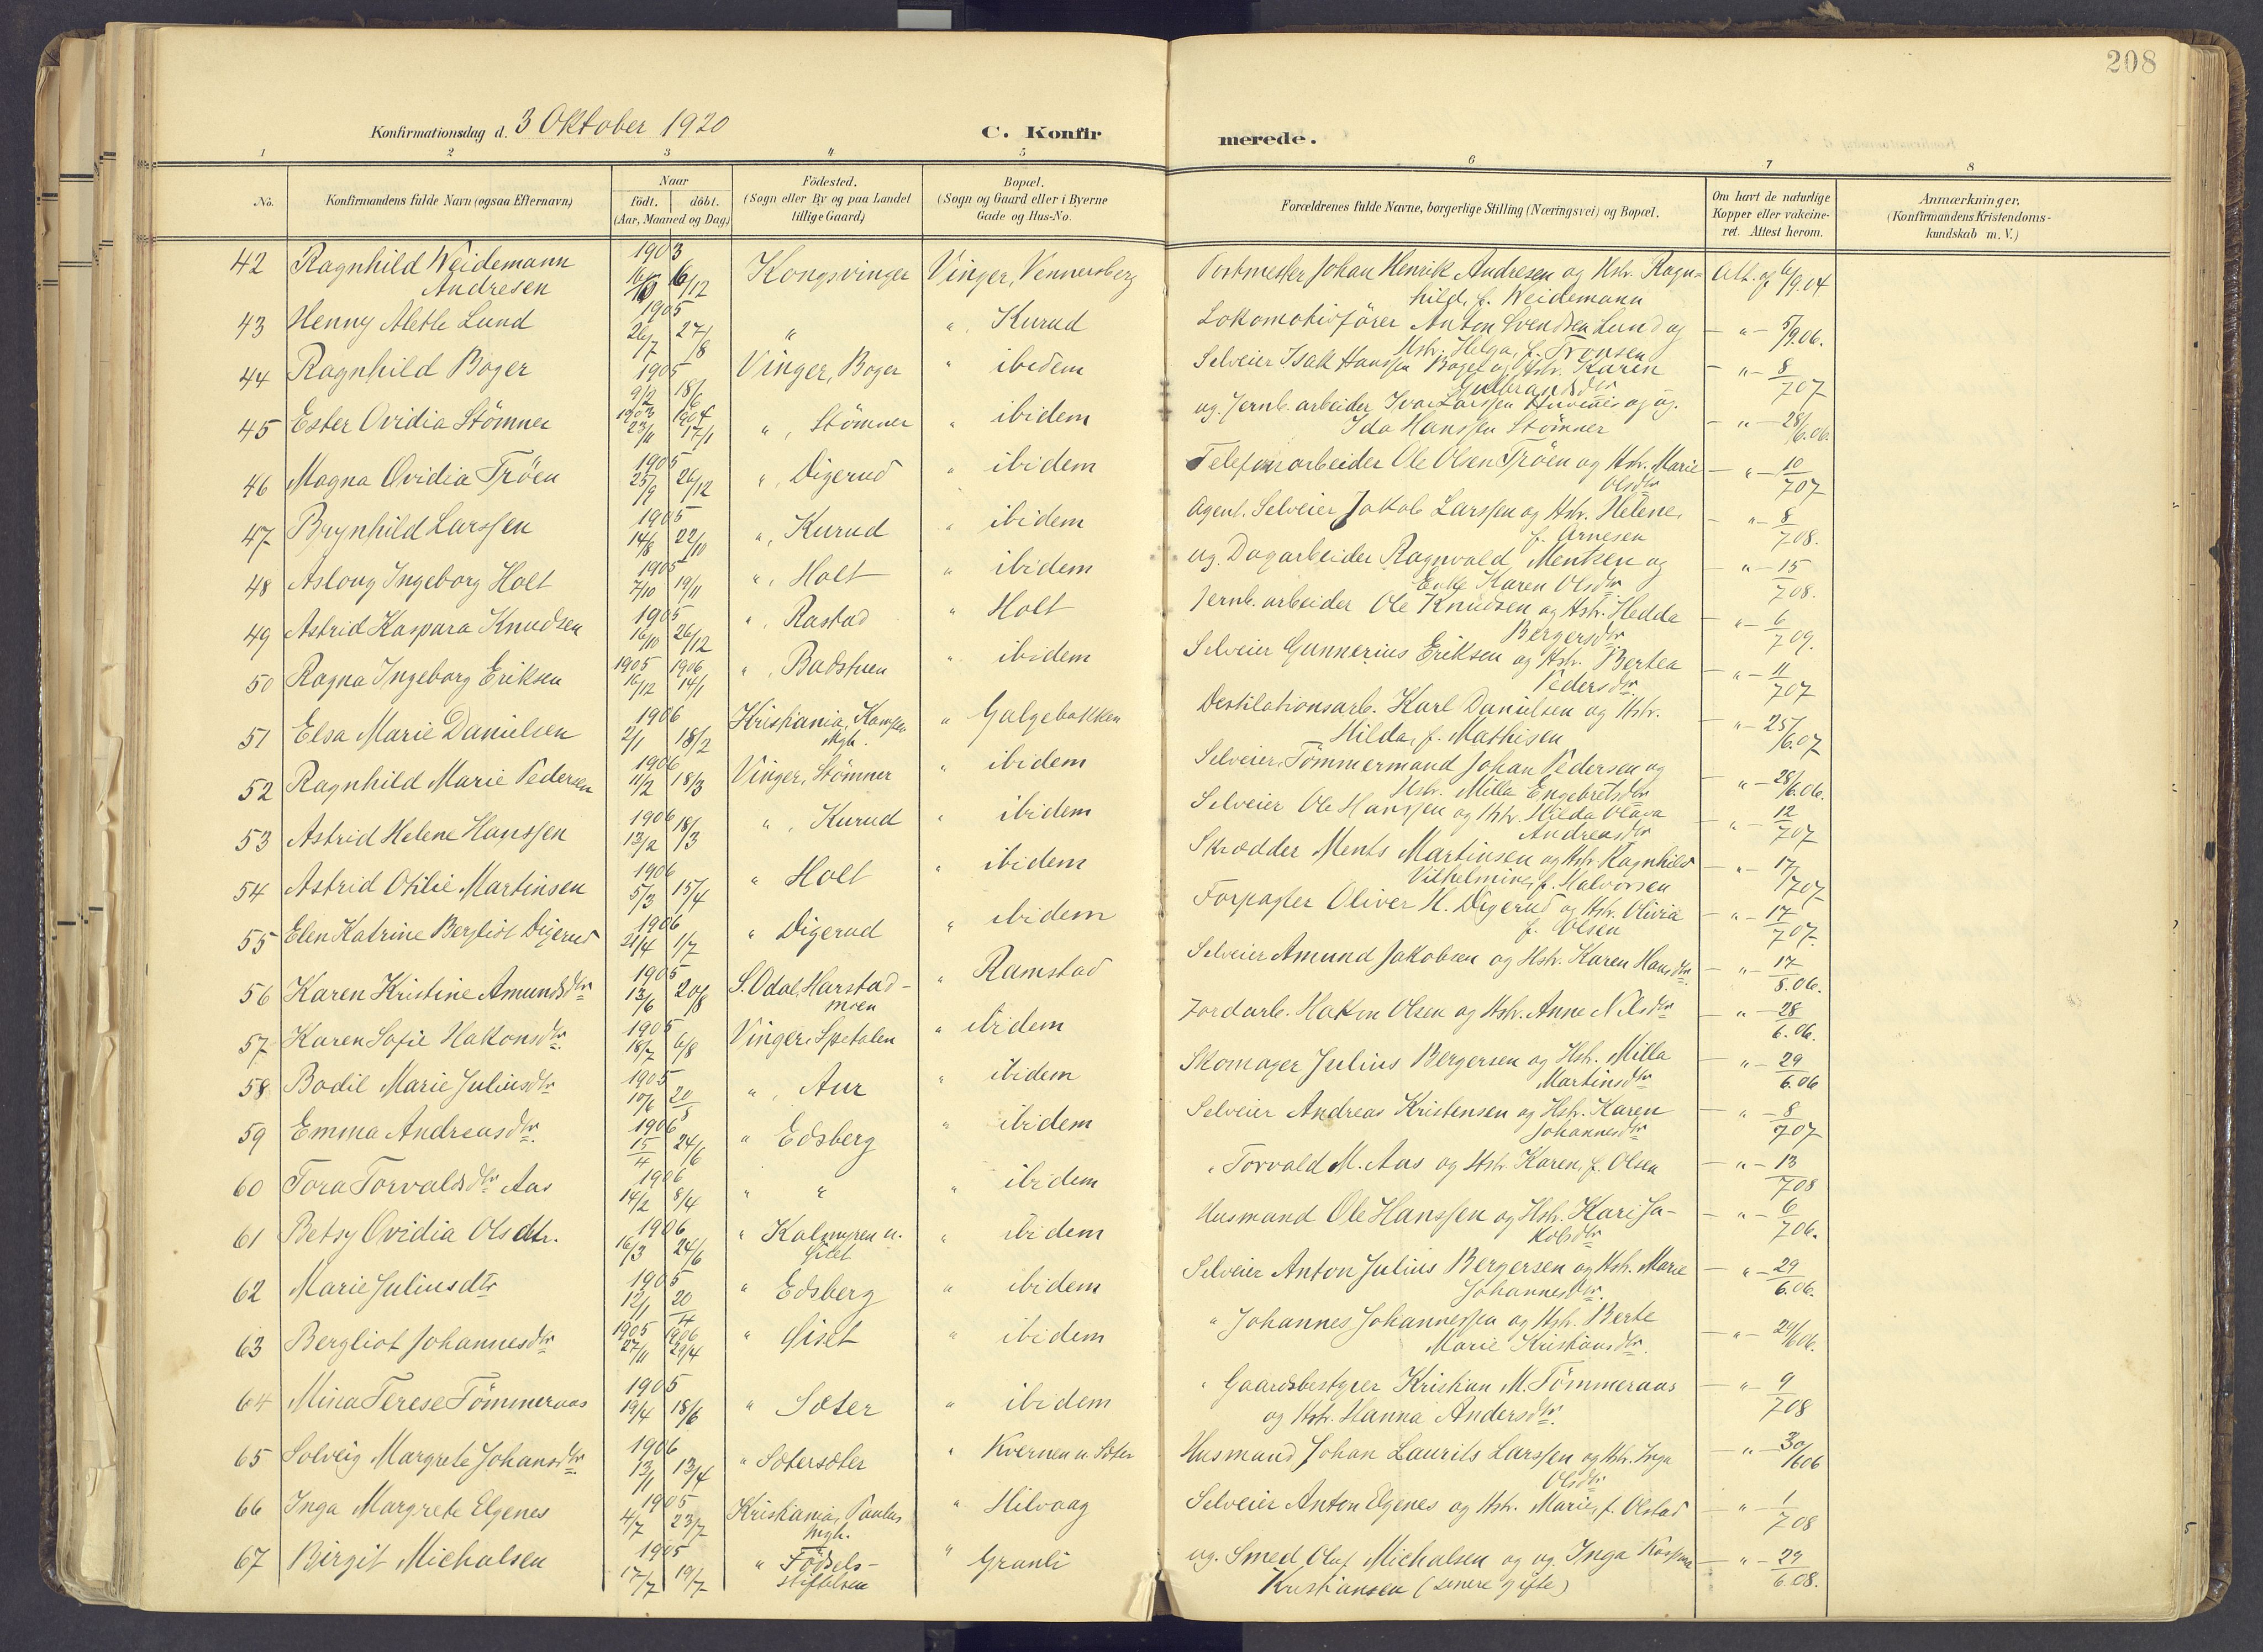 208
Konfirmationsdag d. 3 Oktober 1920
C. Konfir
merede.
1 2 3 4 5 6 7 8
No. Konfirmandens fulde Navn (ogsaa Efternavn) Naar født. døbt. (Aar, Maaned og Dag) Födested. (Sogn eller By og paa Landet tillige Gaard) Bopæl. (Sogn og Gaard eller i Byerne Gade og Hus-No. Forældrenes fulde Navne, borgerlige Stilling (Næringsvei) og Bopæl. Om havt de naturlige Kopper eller vakcineret. Attest herom. Anmærkninger. (Konfirmandens Kristendomskundskab m. V.)
42 Ragnhild Weidemann 1903 16/10 6/12 Kongsvinger Vinger, Vennersberg Portmester Johan Henrik Andresen og Hstr. Ragn= Att. af 6/9.04
Andresen hild, f. Weidemann
43 Henny Alethe Lund 1905 26/7 27/8 " " Kurud Lokomotivfører Anton Svendsen Lund og — " — 5/9.06.
Hstr. Helga, f. Tronsen
44 Ragnhild Boger 1905 9/2 18/6 Vinger, Boger " ibidem Selveier Isak Hanssen Boger og Hstr. Karen — " — 8/707
Gulbrandsdtr
45 Ester Ovidia Stömner 1903 23/11 1904 17/1 " , Stömner " ibidem ug. Jernb. arbeider Ivar Larssen og ug. — " — 28/6.06.
Ida Hanssen Stömner
46 Magna Ovidia Tröen 1905 25/9 26/12 " , Digerud " ibidem Telefonarbeider Ole Olsen Tröen og Hstr. Marie — " — 10/707
Olsdtr
47 Brynhild Larssen 1905 14/8 22/10 " , Kurud " ibidem Agent. Selveier Jakob Larssen og Hstr. Helene, — " — 8/708.
f. Arnesen
48 Aslaug Ingeborg Holt 1905 7/10 19/11 " , Holt " ibidem ug. Dagarbeider Ragnvald Mentsen og — " — 15/708.
Enke Karen Olsdtr
49 Astrid Kaspara Knudsen 1905 16/10 26/12 " , Rastad " Holt Jernb. arbeider Ole Knudsen og Hstr. Hedda — " — 6/709.
Bergersdtr
50 Ragna Ingeborg Eriksen 1905 16/12 1906 14/1 " , Badstuen " ibidem Selveier Gunnerius Eriksen og Hstr. Bertea — " — 11/707
Pedersdtr.
51 Elsa Marie Danielsen 1906 2/1 18/2 Kristiania, Kampen " Galgebakken Destilationsarb. Karl Danielsen og Hstr. " — 25/6.07
Mgh. Hilda, f. Mathisen
52 Ragnhild Marie Pedersen 1906 11/2 18/3 Vinger, Stömner " ibidem Selveier, Tömmermand Johan Pedersen og — " — 28/6.06.
Hstr. Milla Engebretsdtr
53 Astrid Helene Hanssen 1906 13/2 18/3 " , Kurud " ibidem Selveier Ole Hanssen og Hstr. Hilda Olava — " — 12/707
Andreasdtr
54 Astrid Otilie Martinsen 1906 5/3 15/4 " Holt " ibidem Skrædder Ments Martinsen og Hstr. Ragnhild — " — 17/707
Vilhelmine, f. Halvorsen
55 Elen Katrine Bergliot Digerud 1906 21/4 1/7 " Digerud " ibidem Forpagter Oliver H. Digerud og Hstr. Olivia — " — 17/707.
f. Olsen
56 Karen Kristine Amundsdtr 1905 13/6 20/8 S. Odal, Harstad- " Ramstad Selveier Amund Jakobsen og Hstr. Karen Hansdtr. — " — 17/8.06.
moen
57 Karen Sofie Hakonsdtr. 1905 18/7 6/8 Vinger, Spetalen " ibidem Jordarb. Hakon Olsen og Hstr. Anne Nilsdtr " — 28/6.06.
58 Bodil Marie Juliusdtr 1905 10/6 20/8 " , Aur " ibidem Skomager Julius Bergersen og Hstr. Milla " — 29/6.06
Martinsdtr
59 Emma Andreasdtr. 1906 15/4 24/6 " Edsberg " ibidem Selveier Andreas Kristensen og Hstr. Karen " — 8/707
Johannesdtr
60 Tora Torvaldsdtr Aas 1906 14/2 8/4 " " " ibidem " Torvald M. Aas og Hstr. Karen, f. Olsen — " — 13/708
61 Betsy Ovidia Olsdtr. 1906 16/3 24/6 " Kalmyren u. " ibidem Husmand Ole Hanssen og Hstr. Kari Ja- — " — 6/706.
kobsdtr
62 Marie Juliusdtr 1905 12/1 20/4 " Edsberg " ibidem Selveier Anton Julius Bergersen og Hstr. Marie — " — 29/6.06.
Johannesdtr.
63 Bergliot Johannesdtr 1905 27/11 1906 29/4 " " ibidem " Johannes Johannessen og Hstr. Berte — " — 29/606.
Marie Kristiansdtr.
64 Mina Terese Tömmeraas 1905 19/4 18/6 " Sæter " ibidem " Gaardsbestyrer Kristian M. Tömmeraas — " — 9/708
og Hstr. Hanna Andersdtr.
65 Solveig Margrete Johansdtr 1906 13/1 13/4 " Sætersæter " Kvernen u. Sæter Husmand Johan Laurits Larssen og Hstr. Inga — " — 30/606
Olsdtr
66 Inga Margrete Elgenes 1905 4/7 23/7 Kristiania, Paulus " Hilvaag Selveier Anton Elgenes og Hstr. Marie, f. Olstad " — 1/708
Mgh.
67 Birgit Michalsen 1905 17/7 19/7 " Födsels- " Granli ug. Smed Olaf Michalsen og ug. Inga Kaspara — " — 29/6.08.
stiftelsen Kristiansen (senere gifte)